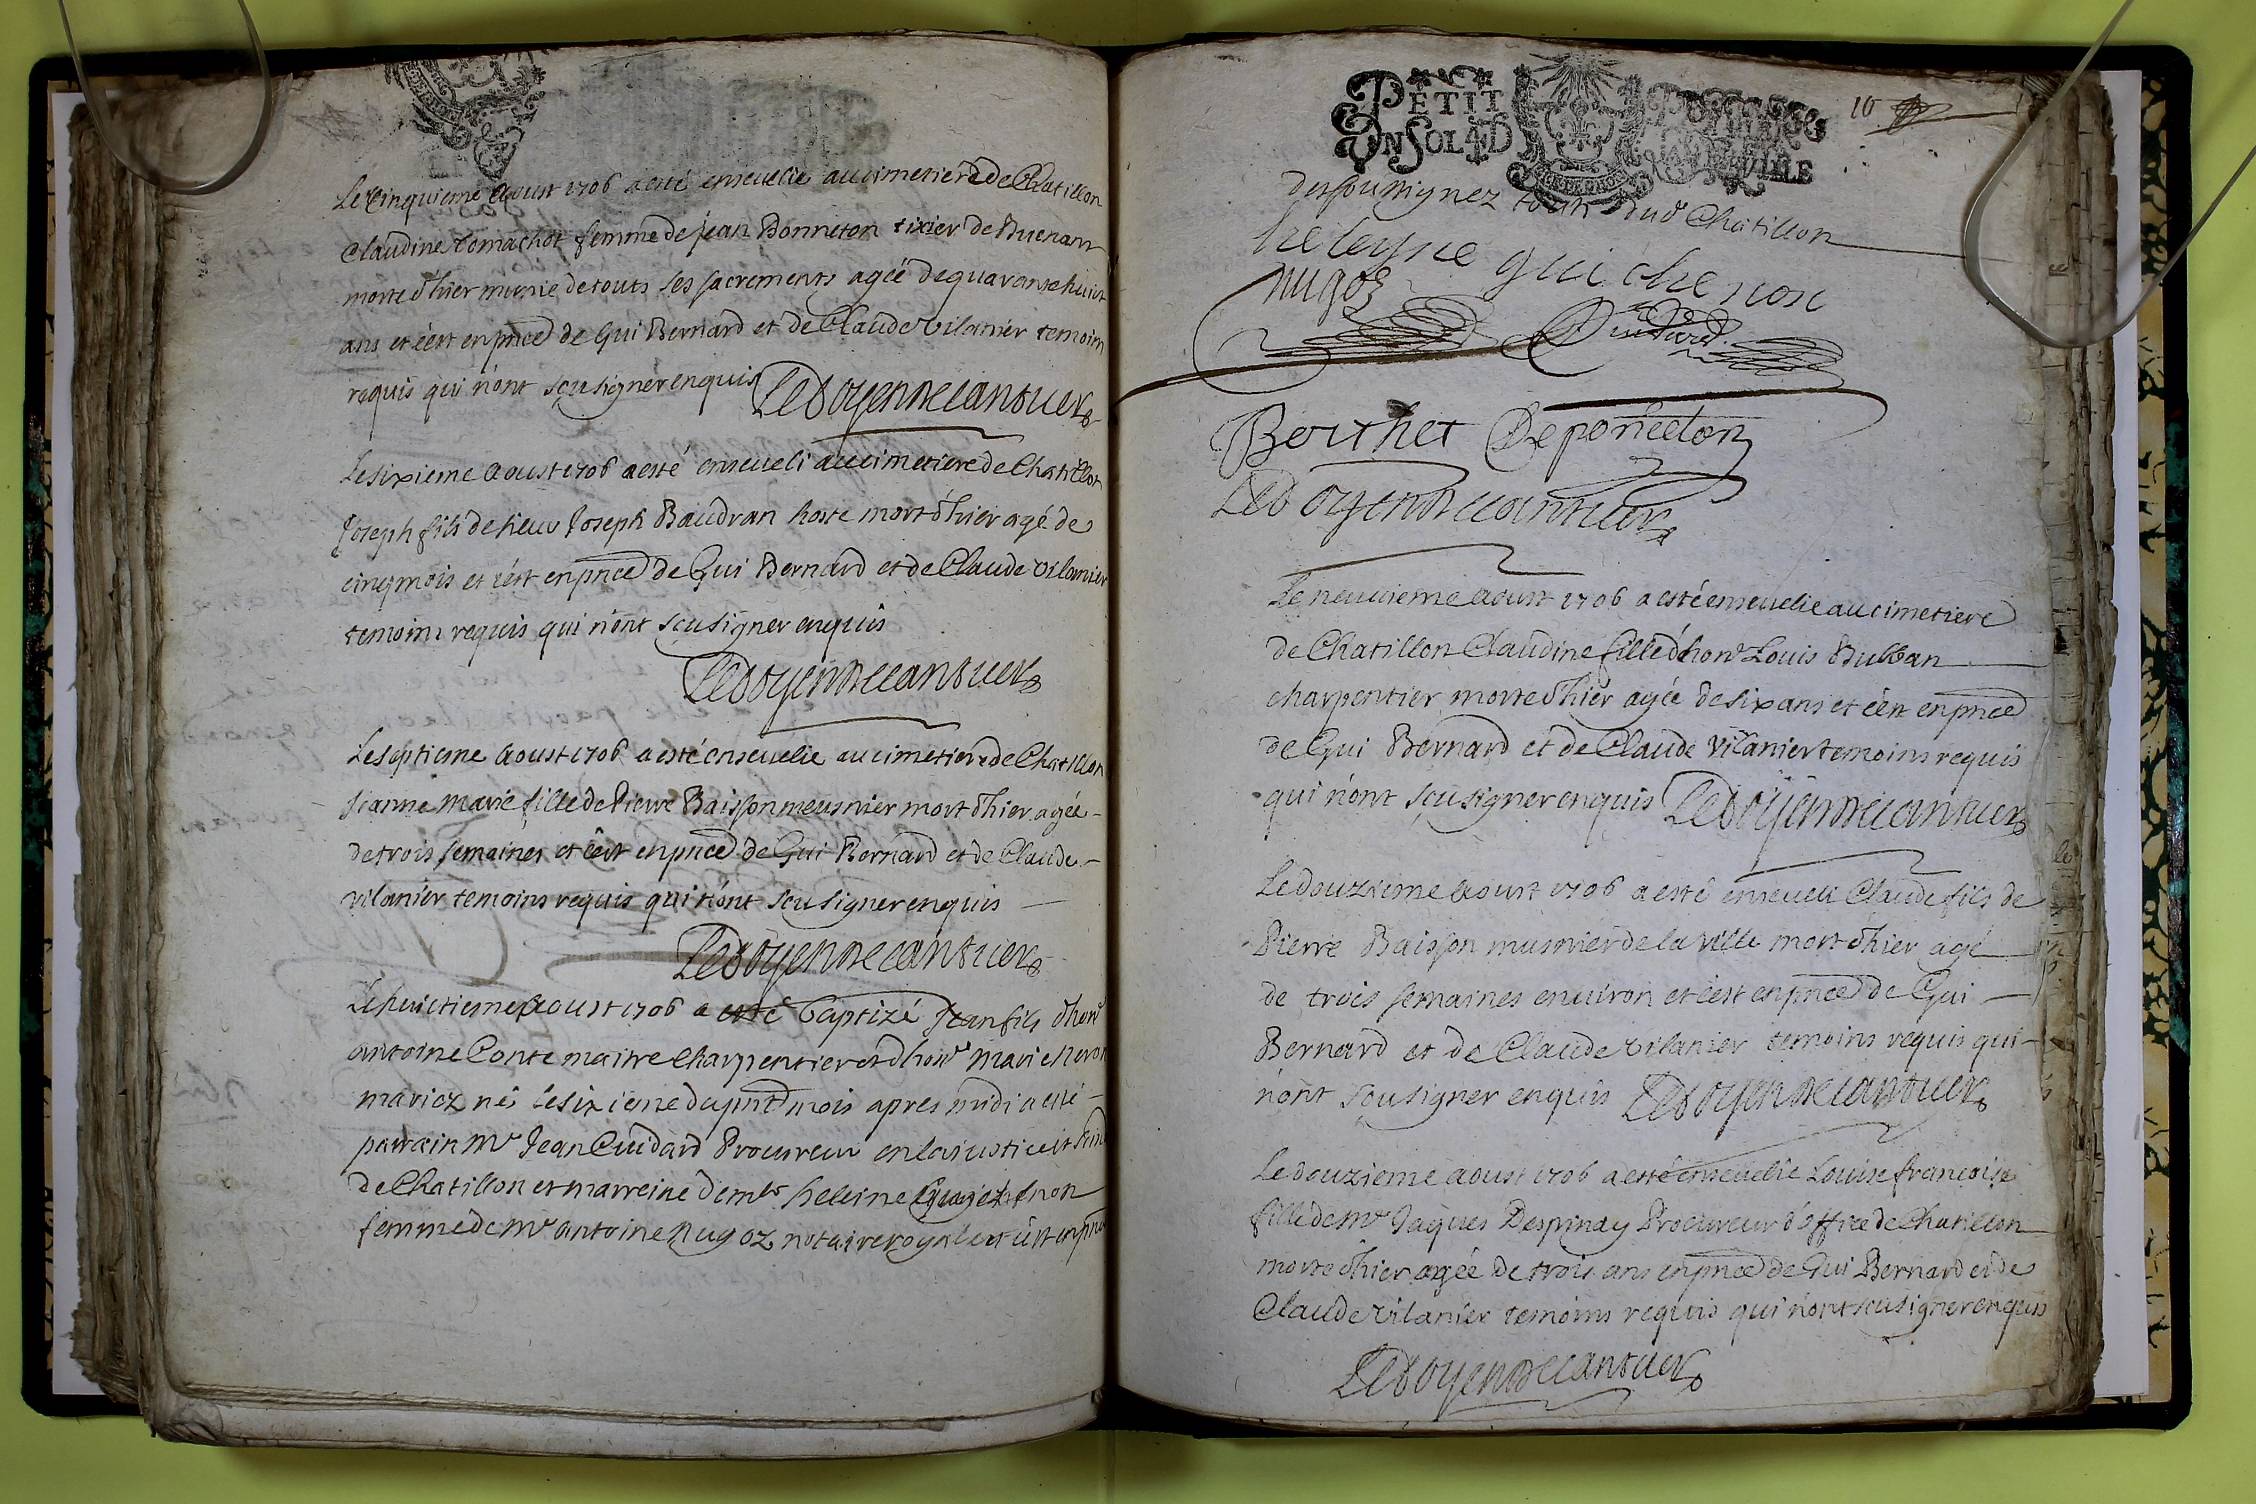 Le cinquieme Aoust 1706 a esté ensevelie au cimetiere de Chatillon
Claudine Comachot femme de jean Bonneton tixier de Buenan
morte d'hier munie de touts ses sacrements agée de quarante huict
ans et c'est en pnce de Gui Bernard et de Claude Vilanier temoins
requis qui n'ont sçu signer enquis Ledoyen de cantuer
Le sixieme Aoust 1706 a esté enseveli au cimetiere de Chatillon
Joseph fils de sieur Joseph Baudran hoste mort d'hier agé de
cinq mois et c'est en pnce de Gui Bernard et de Claude Vilanier
temoins requis qui n'ont sçu signer enquis
Ledoyen de cantuer
Le septieme Aoust 1706 a esté ensevelie au cimetiere de Chatillon
jeanne marie fille de Pierre Baisson meusnier mort d'hier agée
de trois semaines et c'est en pnce de Gui Bernard et de Claude
vilanier temoins requis qui n'ont sçu signer enquis
Ledoyen de cantuer
Le huictieme Aoust 1706 a esté baptizé Jean fils d'hon
antoine Conte maitre charpentier et d'hon marie
mariez né le sixieme du pnt mois apres midi a esté
parrain Mr Jean Cuidard Procureur en la justice et
de Chatillon et marreine demle heleine Guichenon
femme de Mr antoine Nugoz notaire royal et c'est en pnce
PETIT
UN SOL 4 D
10
des soussignez Chatillon
heleyne guichenon
nugoz
Cuidard
Berthet Deponceton
Ledoyen de cantuer
Le neuvieme Aoust 1706 a esté ensevelie au cimetiere
de Chatillon Claudine fille d'hon Louis Bulban
charpentier morte d'hier agée de six ans et c'est en pnce
de Gui Bernard et de Claude Vilanier temoins requis
qui n'ont sçu signer enquis Ledoyen de cantuer
Le douzieme Aoust 1706 a esté enseveli Claude fils de
Pierre Baisson musnier de la ville mort d'hier agé
de trois semaines environ et c'est en pnce de Gui
Bernard et de Claude Vilanier temoins requis qui
n'ont sçu signer enquis Ledoyen de cantuer
Le douzieme aoust 1706 a esté ensevelie Louise françoise
fille de Mr Jaques Despinay Procureur d'offce de Chatillon
morte d'hier agée de trois ans en pnce de Gui Bernard et de
Claude Vilanier temoins requis qui n'ont sçu signer enquis
Ledoyen de cantuer